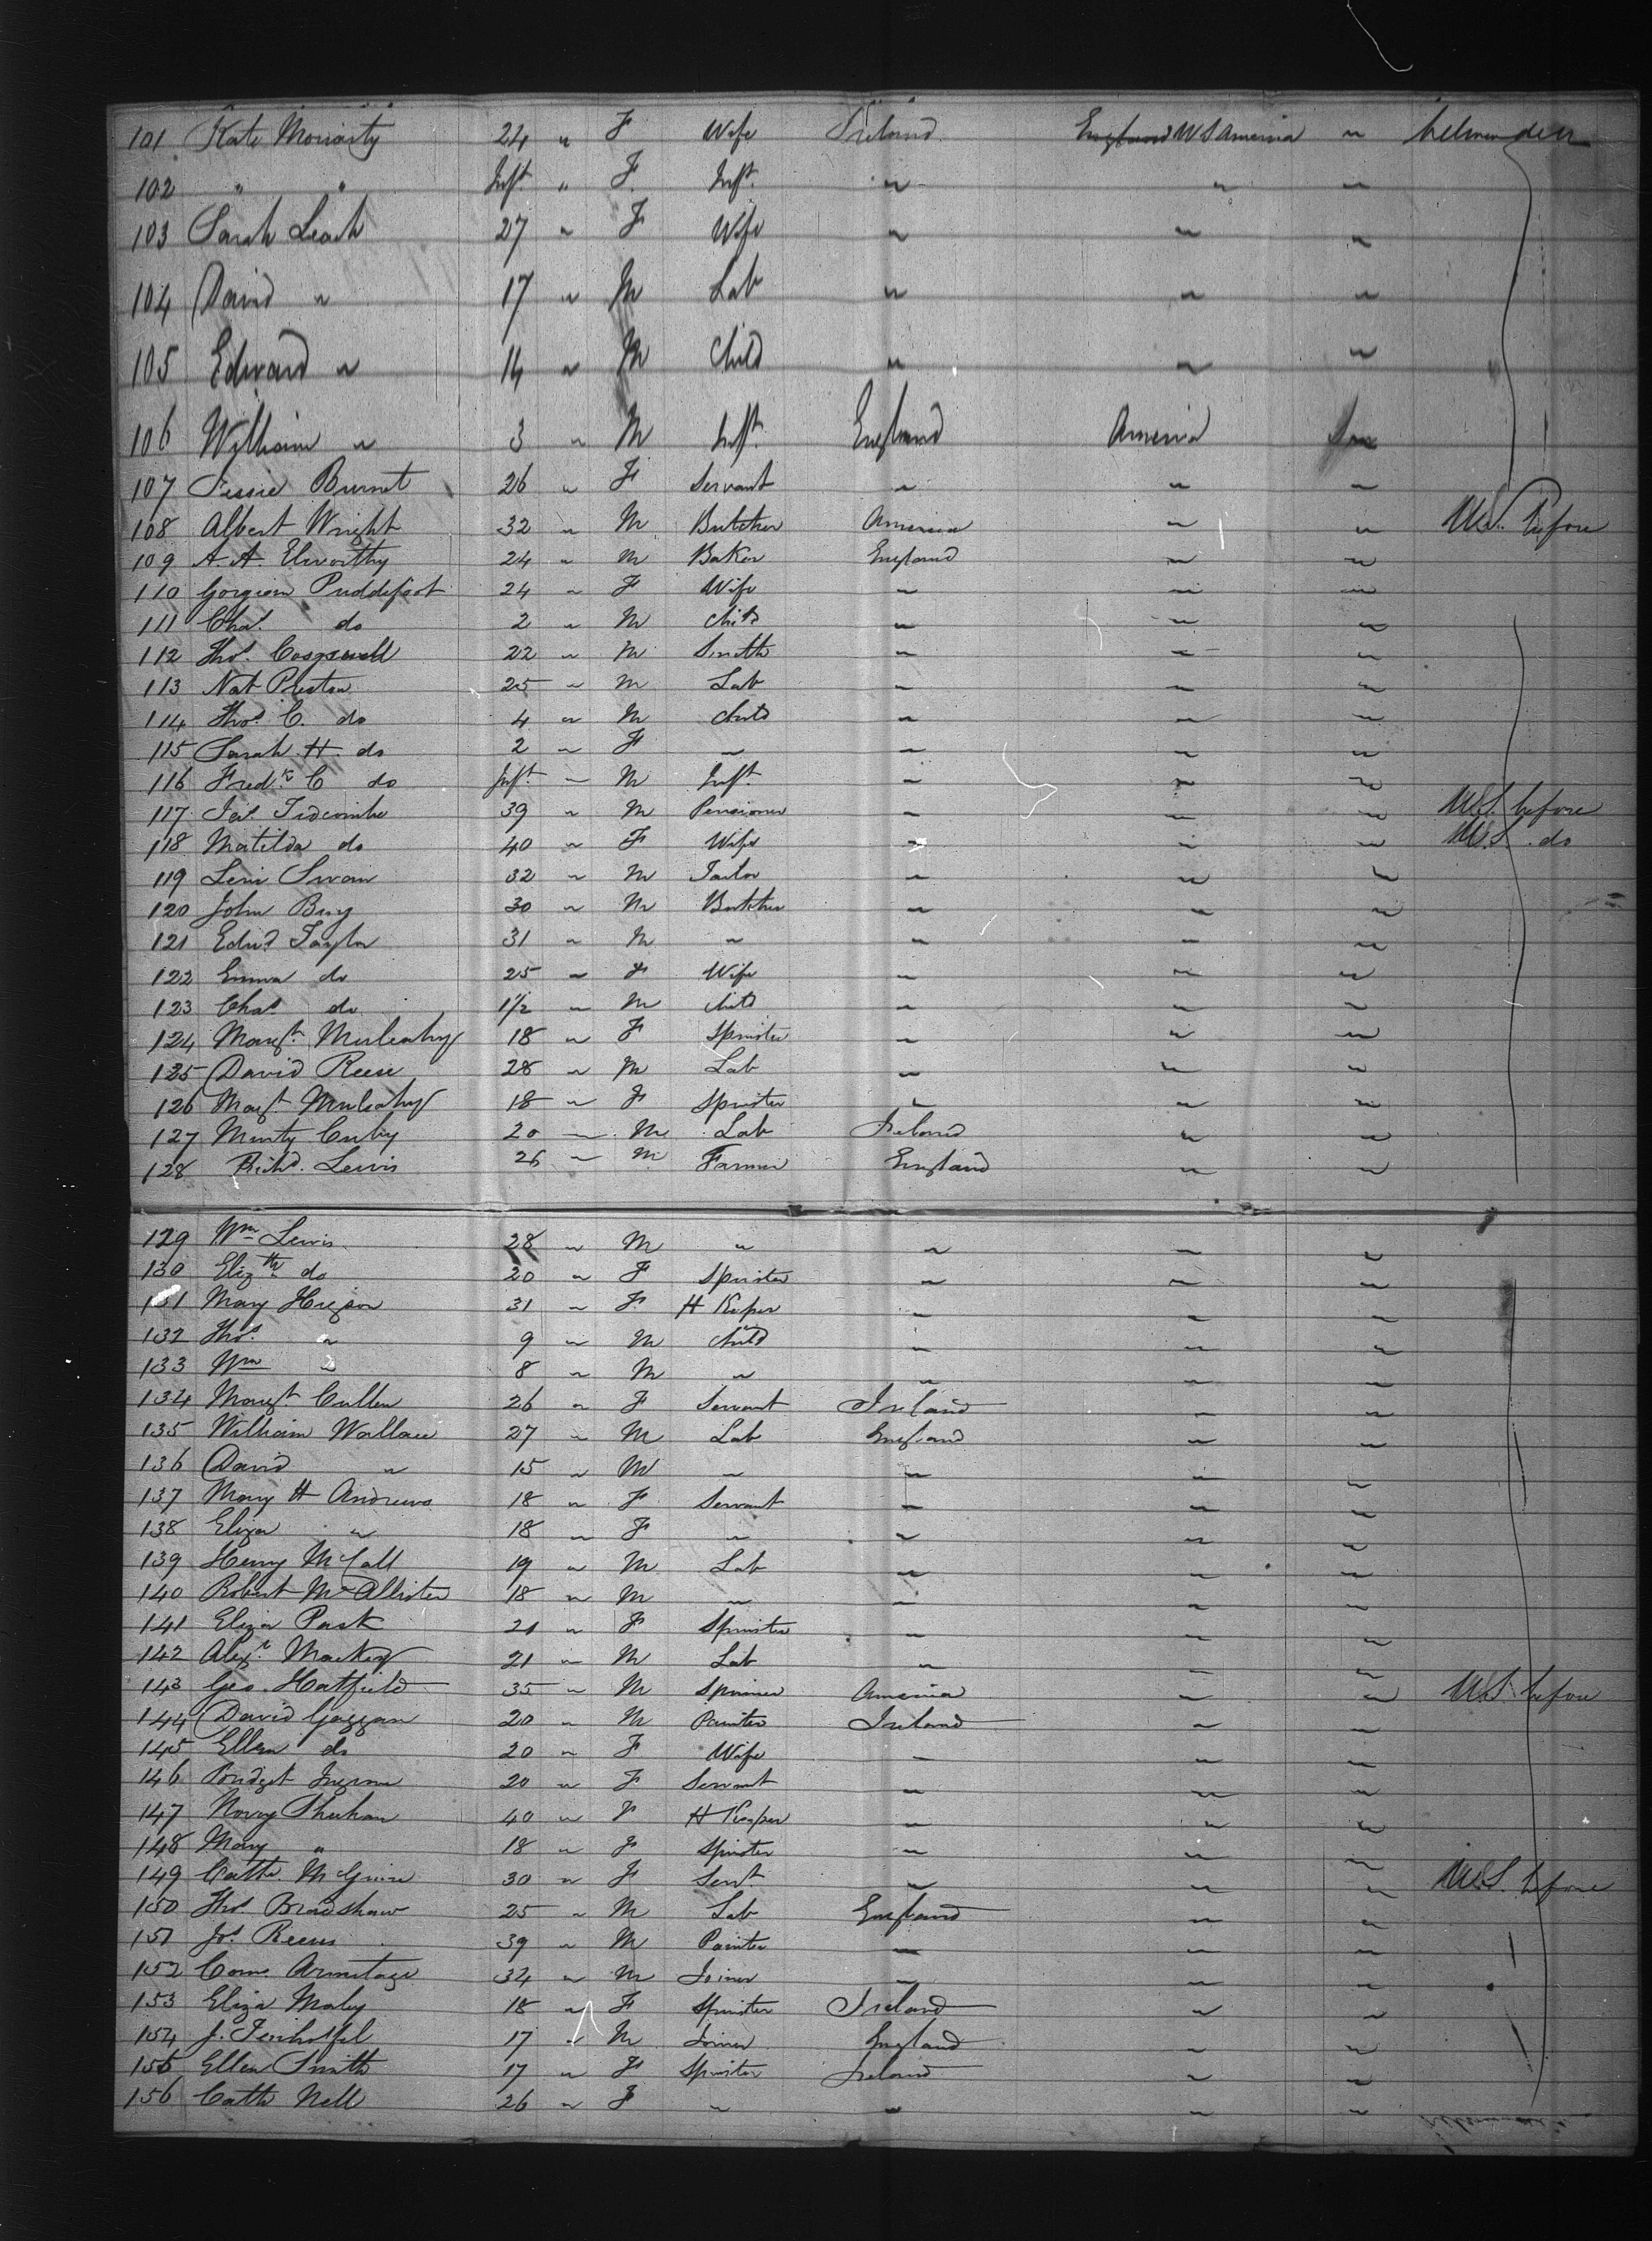 101 Kate Moriarty 24 " F Wife Ireland England U S America "
102 " " Inft " F. Inft. " " "
103 Sarah Leach 27 " F Wife " " "
104 David " 17 " M Lab " " "
105 Edward " 14 " M Child " " "
106 William " 3 " M Inft. England America
107 Jessie Burnet 26 " F Servant " " "
108 Albert Wright 32 " M Butcher America " " U.S. before
109 A. A. Elworthy 24 " M Baker England " "
110 Puddefoot 24 " F Wife " " "
111 Chas. do 2 " M Child " " "
112 Thos. 22 " M Smith " " "
113 Nat Preston 25 " M Lab " " "
114 Thos. C. do 4 " M Child " " "
115 Sarah H. do 2 " F " " " "
116 Fredk. C do Inft. " M Inft. " " "
117 Jas. Tidcombe 39 " M Pensioner " " " U.S. before
118 Matilda do 40 " F Wife " " " U.S. do
119 Levi Swan 32 " M Tailor " " "
120 John 30 " M Butcher " " "
121 Edwd. Taylor 31 " M " " " "
122 Emma do 25 " F Wife " " "
123 Chas. do 1 1/2 " M Child " " "
124 Margt. Mulcahy 18 " F Spinster " " "
125 David Reese 28 " M Lab " " "
126 Margt. Mulcahy 18 " F Spinster " " "
127 20 " M Lab Ireland " "
128 Richd. Lewis 26 " M Farmer England " "
129 Wm Lewis 28 " M " " " "
130 Elizth do 20 " F Spinster " " "
131 Mary 31 " F H Keeper " " "
132 Thos. " 9 " M Child " " "
133 Wm " 8 " M " " " "
134 Margt. Cullen 26 " F Servant Ireland " "
135 William Wallace 27 " M Lab England " "
136 David " 15 " M " " " "
137 Mary H Andrews 18 " F Servant " " "
138 Eliza " 18 " F " " " "
139 Henry McCall 19 " M Lab " " "
140 Robert McAllister 18 " M " " " "
141 Eliza Park 21 " F Spinster " " "
142 Alexr. Mackey 21 " M Lab " " "
143 Geo. Hatfield 35 " M Spinner America " " U.S before
144 David Gazzan 20 " M Painter Ireland " "
145 Ellen do 20 " F Wife " " "
146 Bridget 20 " F Servant " " "
147 Sheehan 40 " F H Keeper " " "
148 Mary " 18 " F Spinster " " "
149 Cathe. McGuire 30 " F Servt. " " " U.S. before
150 Thos. Bradshaw 25 " M Lab England " "
151 Jos. Reeves 39 " M Painter " " "
152 Armitage 34 " M Joiner " " "
153 Eliza Maley 18 " F Spinster Ireland " "
154 J. 17 " M Joiner England " "
155 Ellen Smith 17 " F Spinster Ireland " "
156 Cath Nell 26 " F " " " "